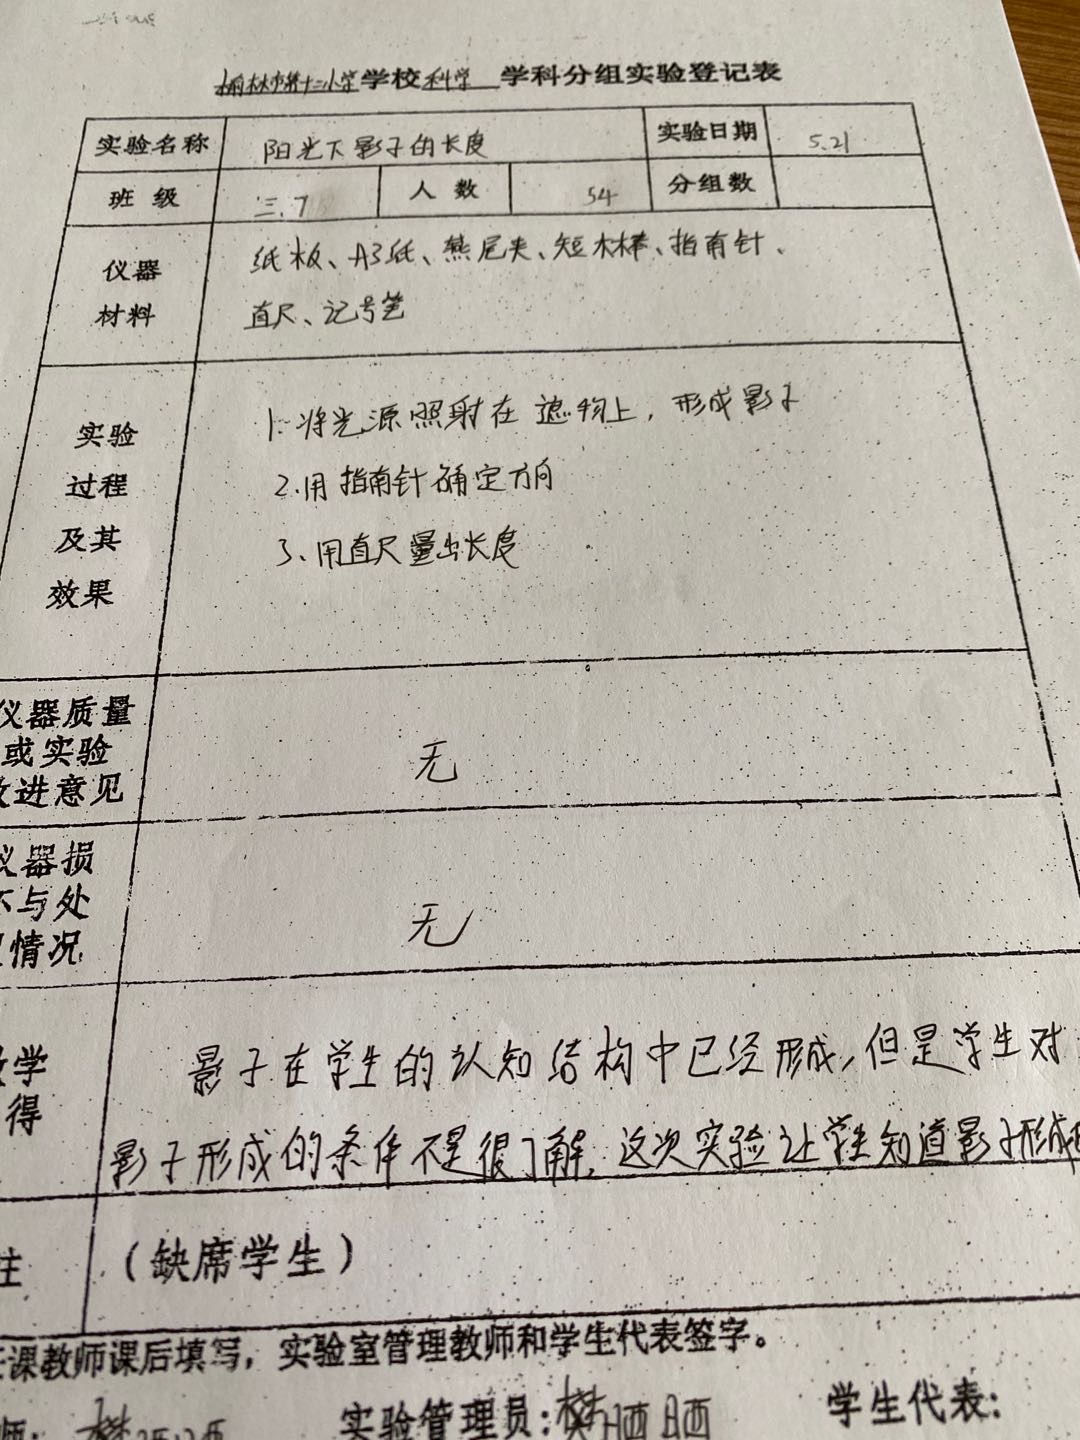 榆林市第十二小学学校科学 学科分组实验登记表
实验名称 阳光下影子的长度 实验日期 5.21
班 级 三.7 人 数 54 分组数
仪器 纸板、A3纸、燕尾夹、短木棒、指南针、
材料 直尺、记号笔
实验 1.将光源照射在遮物上，形成影子
过程 2.用指南针确定方向
及其 3、用直尺量出长度
效果
仪器质量
或实验 无
改进意见
仪器损
坏与处 无
理情况
教学 影子在学生的认知结构中已经形成,但是学生对
得 影子形成的条件不是很了解.这次实验让学生知道影子形成
注 （缺席学生）
任课教师课后填写，实验室管理教师和学生代表签字。
师: 樊 实验管理员:樊晒晒 学生代表: